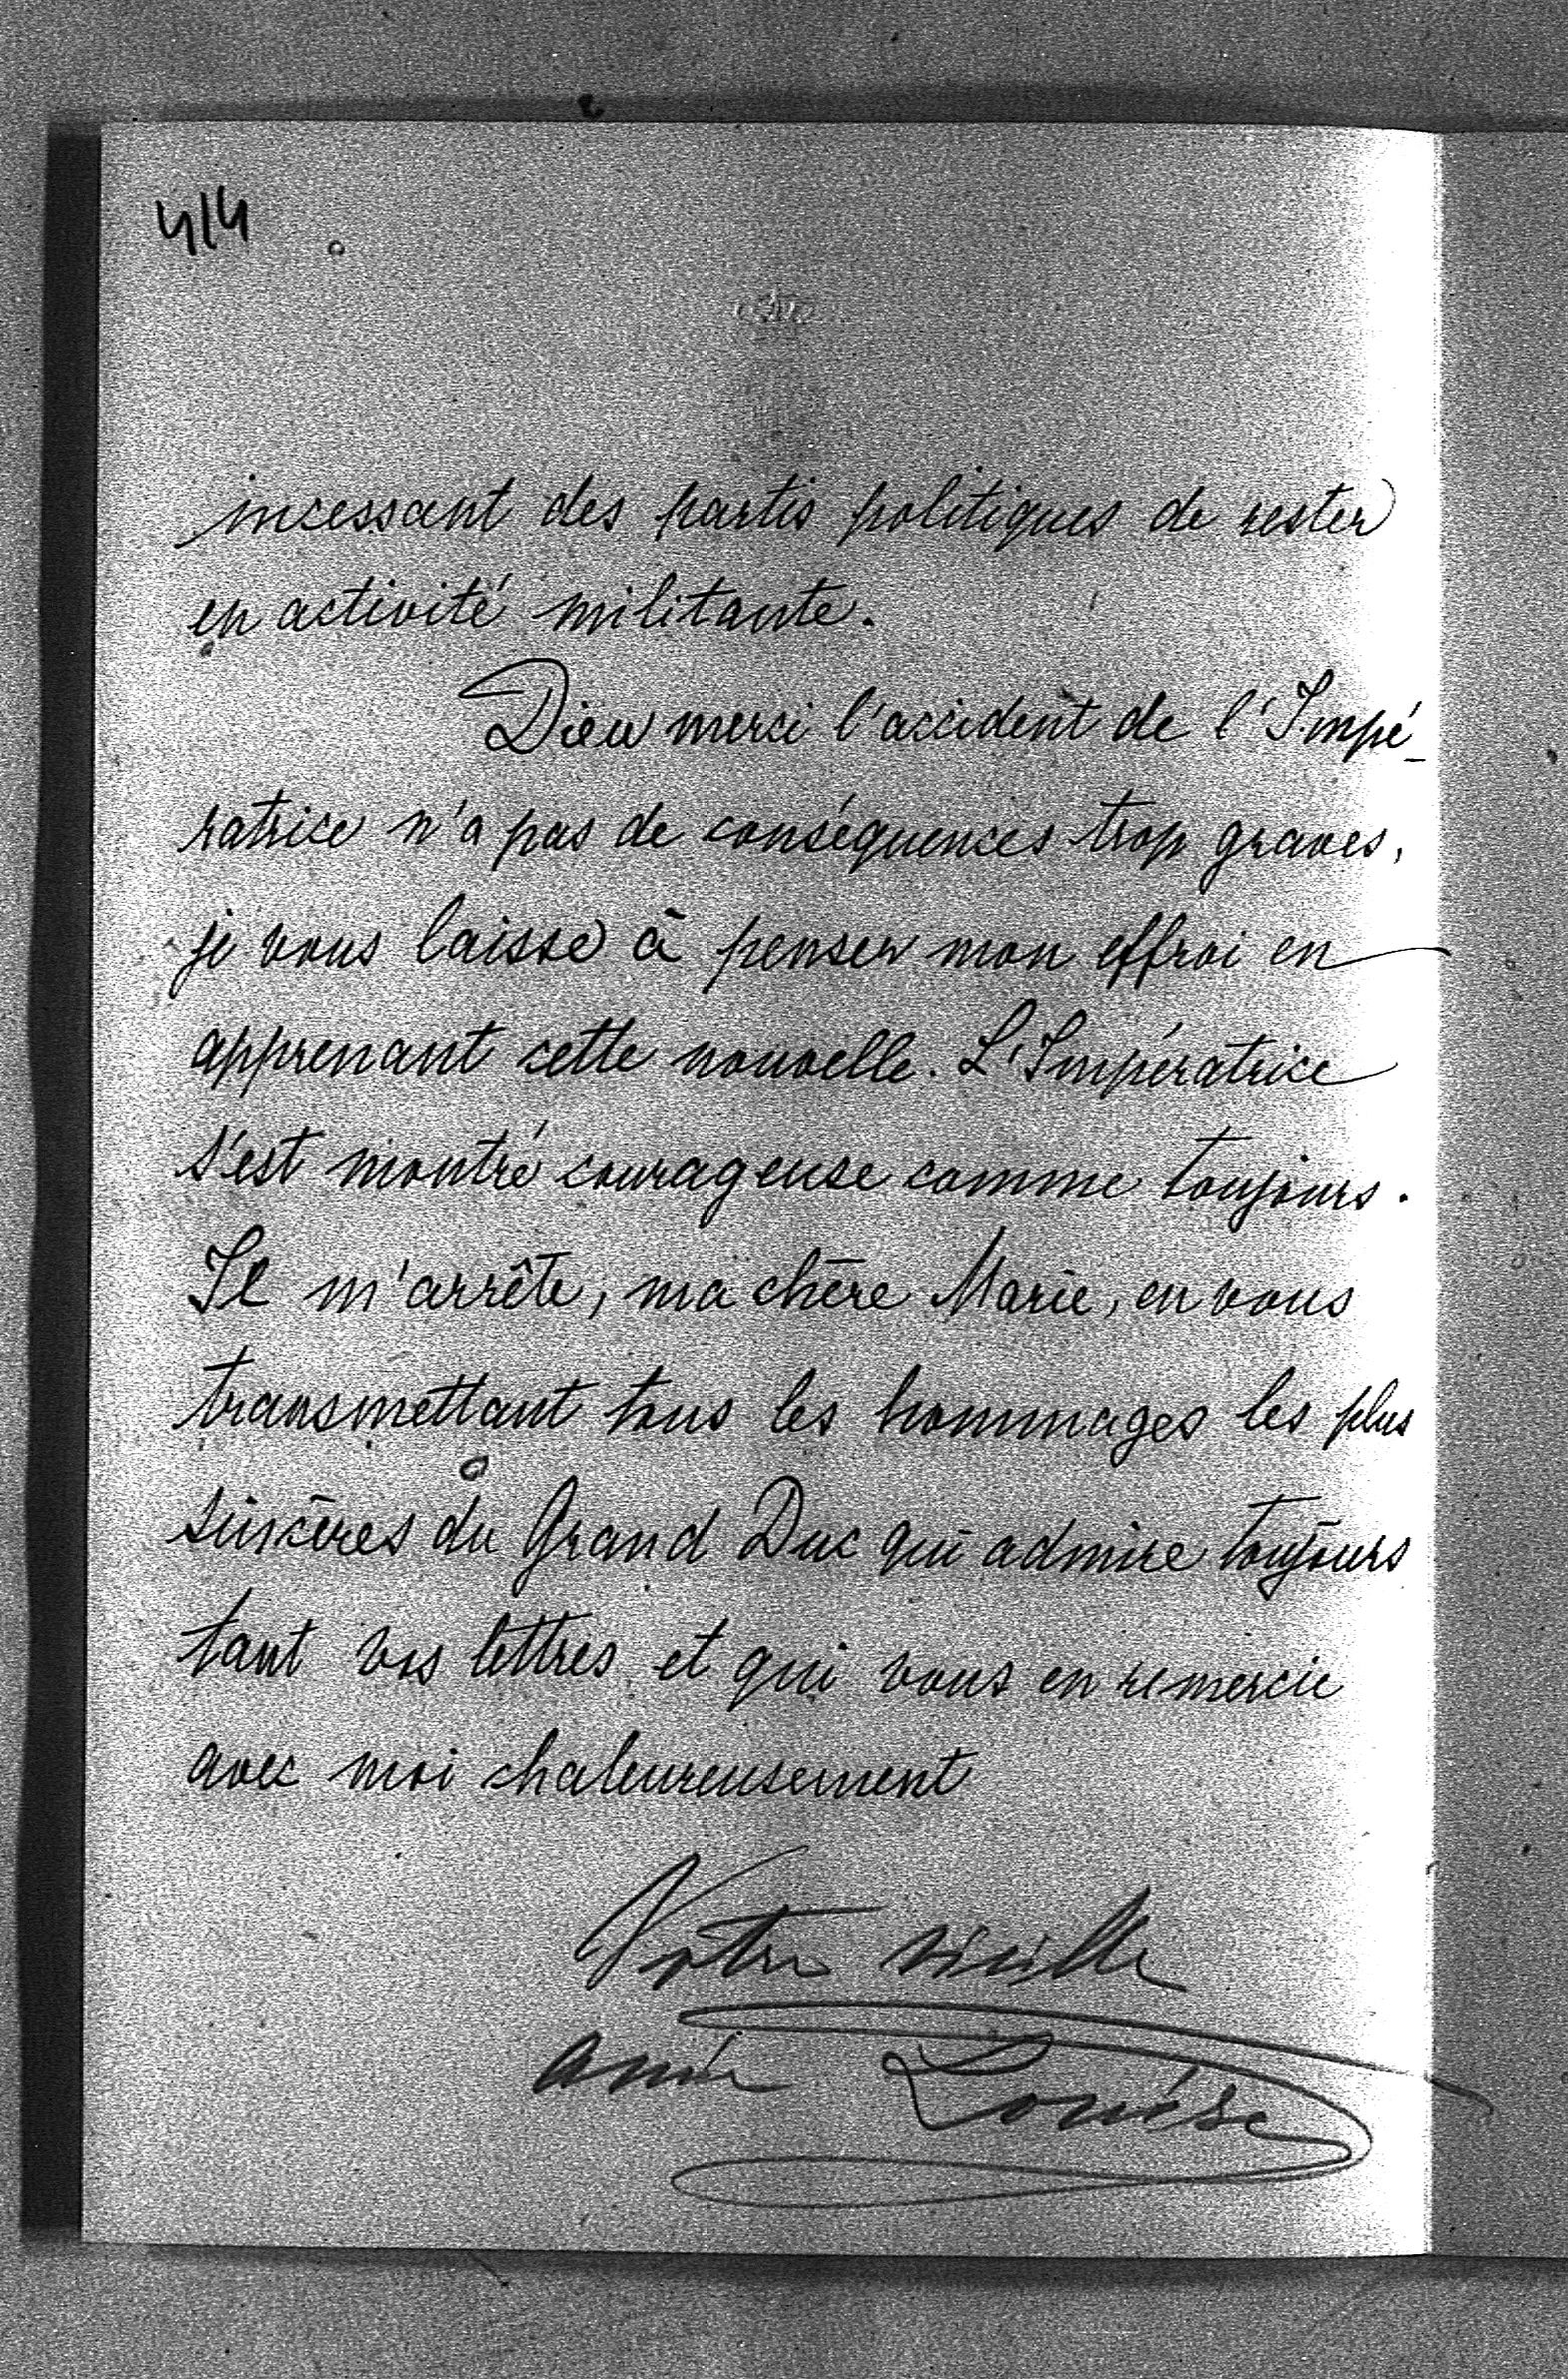 4/4
incessant des partis politiques de rester
en activité militante.
Dieu merci l'accident de l'Impé-
ratrice n'a pas de conséquences trop graves,
je vous laisse à penser mon effroi en
apprenant cette nouvelle. L'Impératrice
s'est montré courageuse comme toujours.
Je m'arrête, ma chère Marie, en vous
transmettant tous les hommages les plus
sincères du Grand Duc qui admire toujours
tant vos lettres et qui vous en remercie
avec moi chaleureusement
Votre vieille
amie Louise